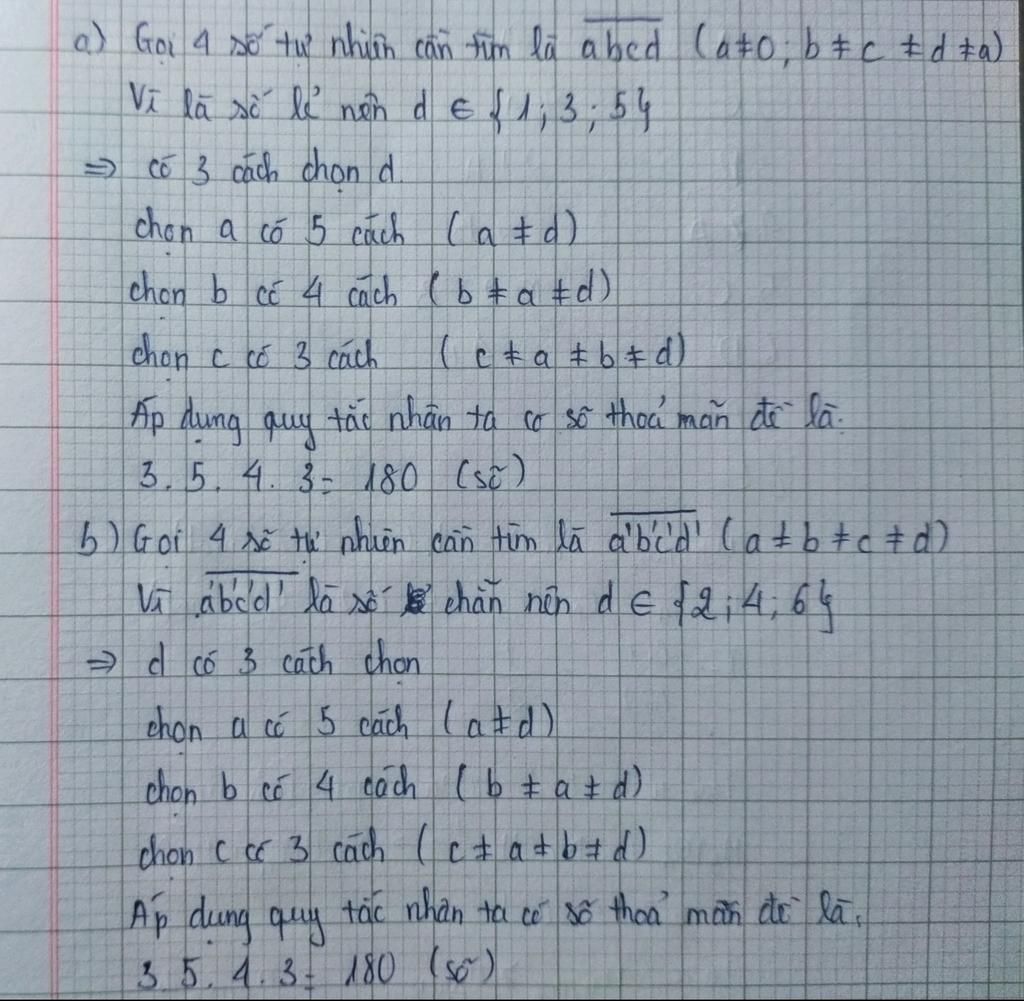 a) Gọi 4 số tự nhiên cần tìm là abcd (a≠0; b≠c≠d≠a)
Vì là số lẻ nên d ∈ {1; 3; 5}
⇒ có 3 cách chọn d
chọn a có 5 cách (a≠d)
chọn b có 4 cách (b≠a≠d)
chọn c có 3 cách (c≠a≠b≠d)
Áp dụng quy tắc nhân ta có số thoả mãn đề là:
3. 5. 4. 3= 180 (số)
b) Gọi 4 số tự nhiên cần tìm là a'b'c'd' (a≠b≠c≠d)
Vì a'b'c'd' là số chẵn nên d ∈ {2; 4; 6}
⇒ d có 3 cách chọn
chọn a có 5 cách (a≠d)
chọn b có 4 cách (b≠a≠d)
chọn c có 3 cách (c≠a≠b≠d)
Áp dụng quy tắc nhân ta có số thoả mãn đề là.
3. 5. 4. 3= 180 (số)